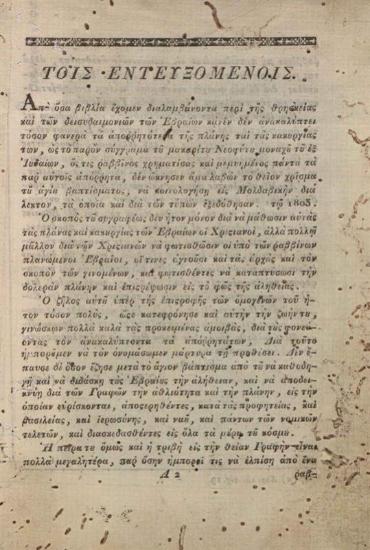 ΤΟΙΣ ΕΝΤΕΥΞΟΜΕΝΟΙΣ.
Ἀπὸ ὅσα βιβλία ἔχομεν διαλαμβάνοντα περὶ τῆς θρησκείας
καὶ τῶν δεισιδαιμονιῶν τῶν Ἑβραίων κᾀνὲν δὲν ἀνακαλύπτει
τόσον φανερὰ τὰ ἀπόρρητα τῆς πλάνης καὶ τὰς κακουργίας
των, ὡς τὸ παρὸν σύγγραμμα τοῦ μακαρίτου Νεοφύτου μοναχοῦ τοῦ ἐξ
Ἰουδαίων, ὅς τις ῥαββῖνος χρηματίσας καὶ μεμυημένος πάντα τὰ
παρ' αὐτοῖς ἀπόρρητα, δὲν ὤκνησεν ἅμα λαβὼν τὸ θεῖον χρίσμα
τοῦ ἁγίου βαπτίσματος, νὰ κοινολογήσῃ εἰς Μολδαβικὴν διά-
λεκτον, τὰ ὁποῖα καὶ διὰ τῶν τύπων ἐξεδόθησαν τῷ 1803.
Ὁ σκοπὸς τοῦ συγγραφέως δὲν ἦτον μόνον διὰ νὰ μάθωσιν αὐτὰς
τὰς πλάνας καὶ κακουργίας τῶν Ἑβραίων οἱ Χριστιανοὶ, ἀλλὰ πολλῷ
μᾶλλον διὰ νὰ φωτισθῶσιν οἱ ὑπὸ τῶν ῥαββίνων
πλανώμενοι Ἑβραῖοι, οἵτινες ἀγνοοῦσι καὶ τὰς ἀρχὰς καὶ τὸν
σκοπὸν τῶν γινομένων, καὶ φωτισθέντες νὰ καταπτύσωσι τὴν
δολερὰν πλάνην καὶ ἐπιστρέψωσιν εἰς τὸ φῶς τῆς ἀληθείας.
Ὁ ζῆλος αὐτοῦ ὑπὲρ τῆς ἐπιστροφῆς τῶν ὁμογενῶν του ἦ-
τον τόσον πολὺς, ὥστε κατεφρόνησε καὶ αὐτὴν τὴν ζωήν του
γινώσκων πολλὰ καλὰ τὰς προκειμένας ἀμοιβὰς, διὰ τὰς
τὸν ἀνακαλύπτοντα τὰ ἀπόρρητά των. Διὰ τοῦτο
ἠμποροῦμεν νὰ τὸν ὀνομάσωμεν μάρτυρα τῇ προθέσει. Δὲν ἔ-
παυσε δὲ ὅσον ἔζησε μετὰ τὸ ἅγιον βάπτισμα ἀπὸ τοῦ νὰ καθοδη-
γῇ καὶ νὰ διδάσκῃ τοὺς Ἑβραίους τὴν ἀλήθειαν, καὶ νὰ ἀποδει-
κνύῃ διὰ τῶν Γραφῶν τὴν ἀθλιότητα καὶ τὴν πλάνην, εἰς τὴν
ὁποίαν εὑρίσκονται, ἀποστερηθέντες, κατὰ τὰς προφητείας, καὶ
βασιλείας, καὶ ἱερωσύνης, καὶ ναοῦ, καὶ πάντων τῶν νομικῶν
τελετῶν, καὶ διασκεδασθέντες εἰς ὅλα τὰ μέρη τοῦ κόσμου.
Ἡ πεῖρά του ὅμως καὶ ἡ τριβὴ εἰς τὴν θείαν Γραφὴν εἶναι
πολλὰ μεγαλητέρα, παρ' ὅσην ἠμπορεῖ τις νὰ ἐλπίσῃ ἀπὸ ἕνα
A 2 ῥαβ-